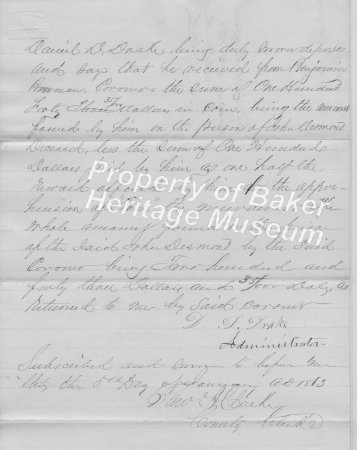 Daniel D. Drake being duly sworn deposes
and says that he received from Benjamin
Coroner the sum of One Hundred
forty three Dollars in coin, being the amount
found by him on the person of John Desmond
Deceased, less the sum of One Hundred
Dollars paid by him as one half the
reward offered for the appre-
hension of the
whole amount
of the said John Desmond by the said
Coroner being Two hundred and
forty three Dollars and
returned to me by said coroner
D. D. Drake
Administrator
Subscribed and sworn to before me
this the 5th Day of January AD 1863
County Clerk
Property of Baker
Heritage Museum